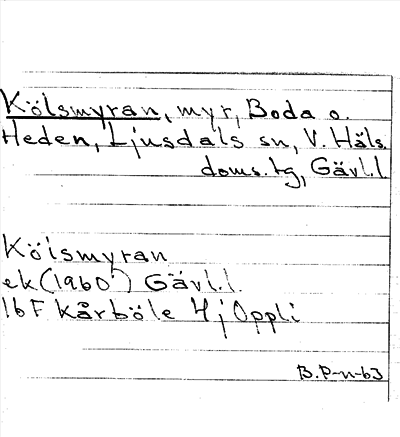 Kölsmyran, myr, Boda o.
Heden, Ljusdals sn, V. Häls.
doms. tg, Gävl.l
Kölsmyran
ek (1960) Gävl.l.
16F Kårböle 4j Oppli
B.P-n-63